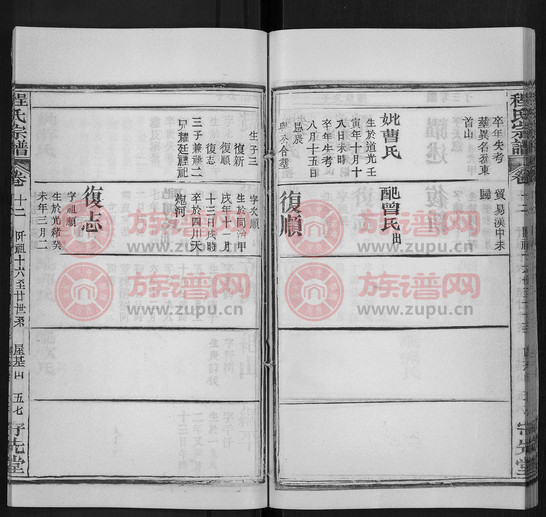 程氏宗譜
卷
卒年失考
葬異名翁東
首山
貿易漢中未
歸
妣曹氏
生於道光壬
寅年十月十
八日未時
卒年失考
八月十五日
配曾氏出
復順
生子三
復新
復順
復志
三子兼祧二
兄耀廷禋祀
字次順
生於同治甲
戌年十一月
十三日戌時
卒於四川天
炮河
復志
字祖順
生於光緒癸
未年三月二
程氏宗譜
卷十二
阡祖十六至廿世系
屋基
五七
守先堂
族谱网
www.zupu.cn
族谱网
www.zupu.cn
族谱网
www.zupu.cn
族谱网
www.zupu.cn